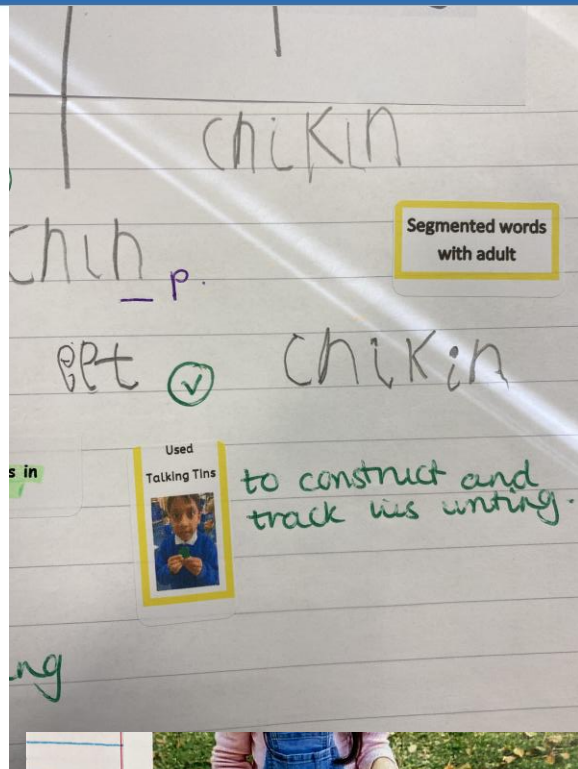 chikin
Segmented words
with adult
chin
p.
eet
chikin
s in
Used
Talking Tins
to construct and
track his writing.
ng